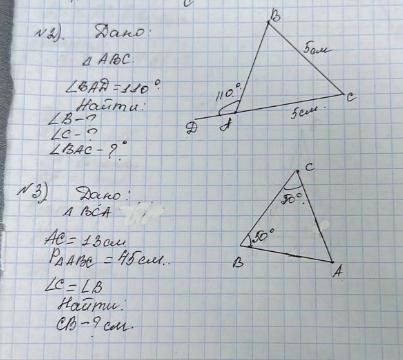 №2). Дано:
△ ABC.
∠BAD = 110°
Найти:
∠B - ?
∠C - ?
∠BAC - ?°
B
5см
110°
C
5см
D
A
№3) Дано:
△ BCA
AC = 13см
P△ABC = 45см.
∠C = ∠B
Найти:
CB - ? см.
C
50°
50°
B
A